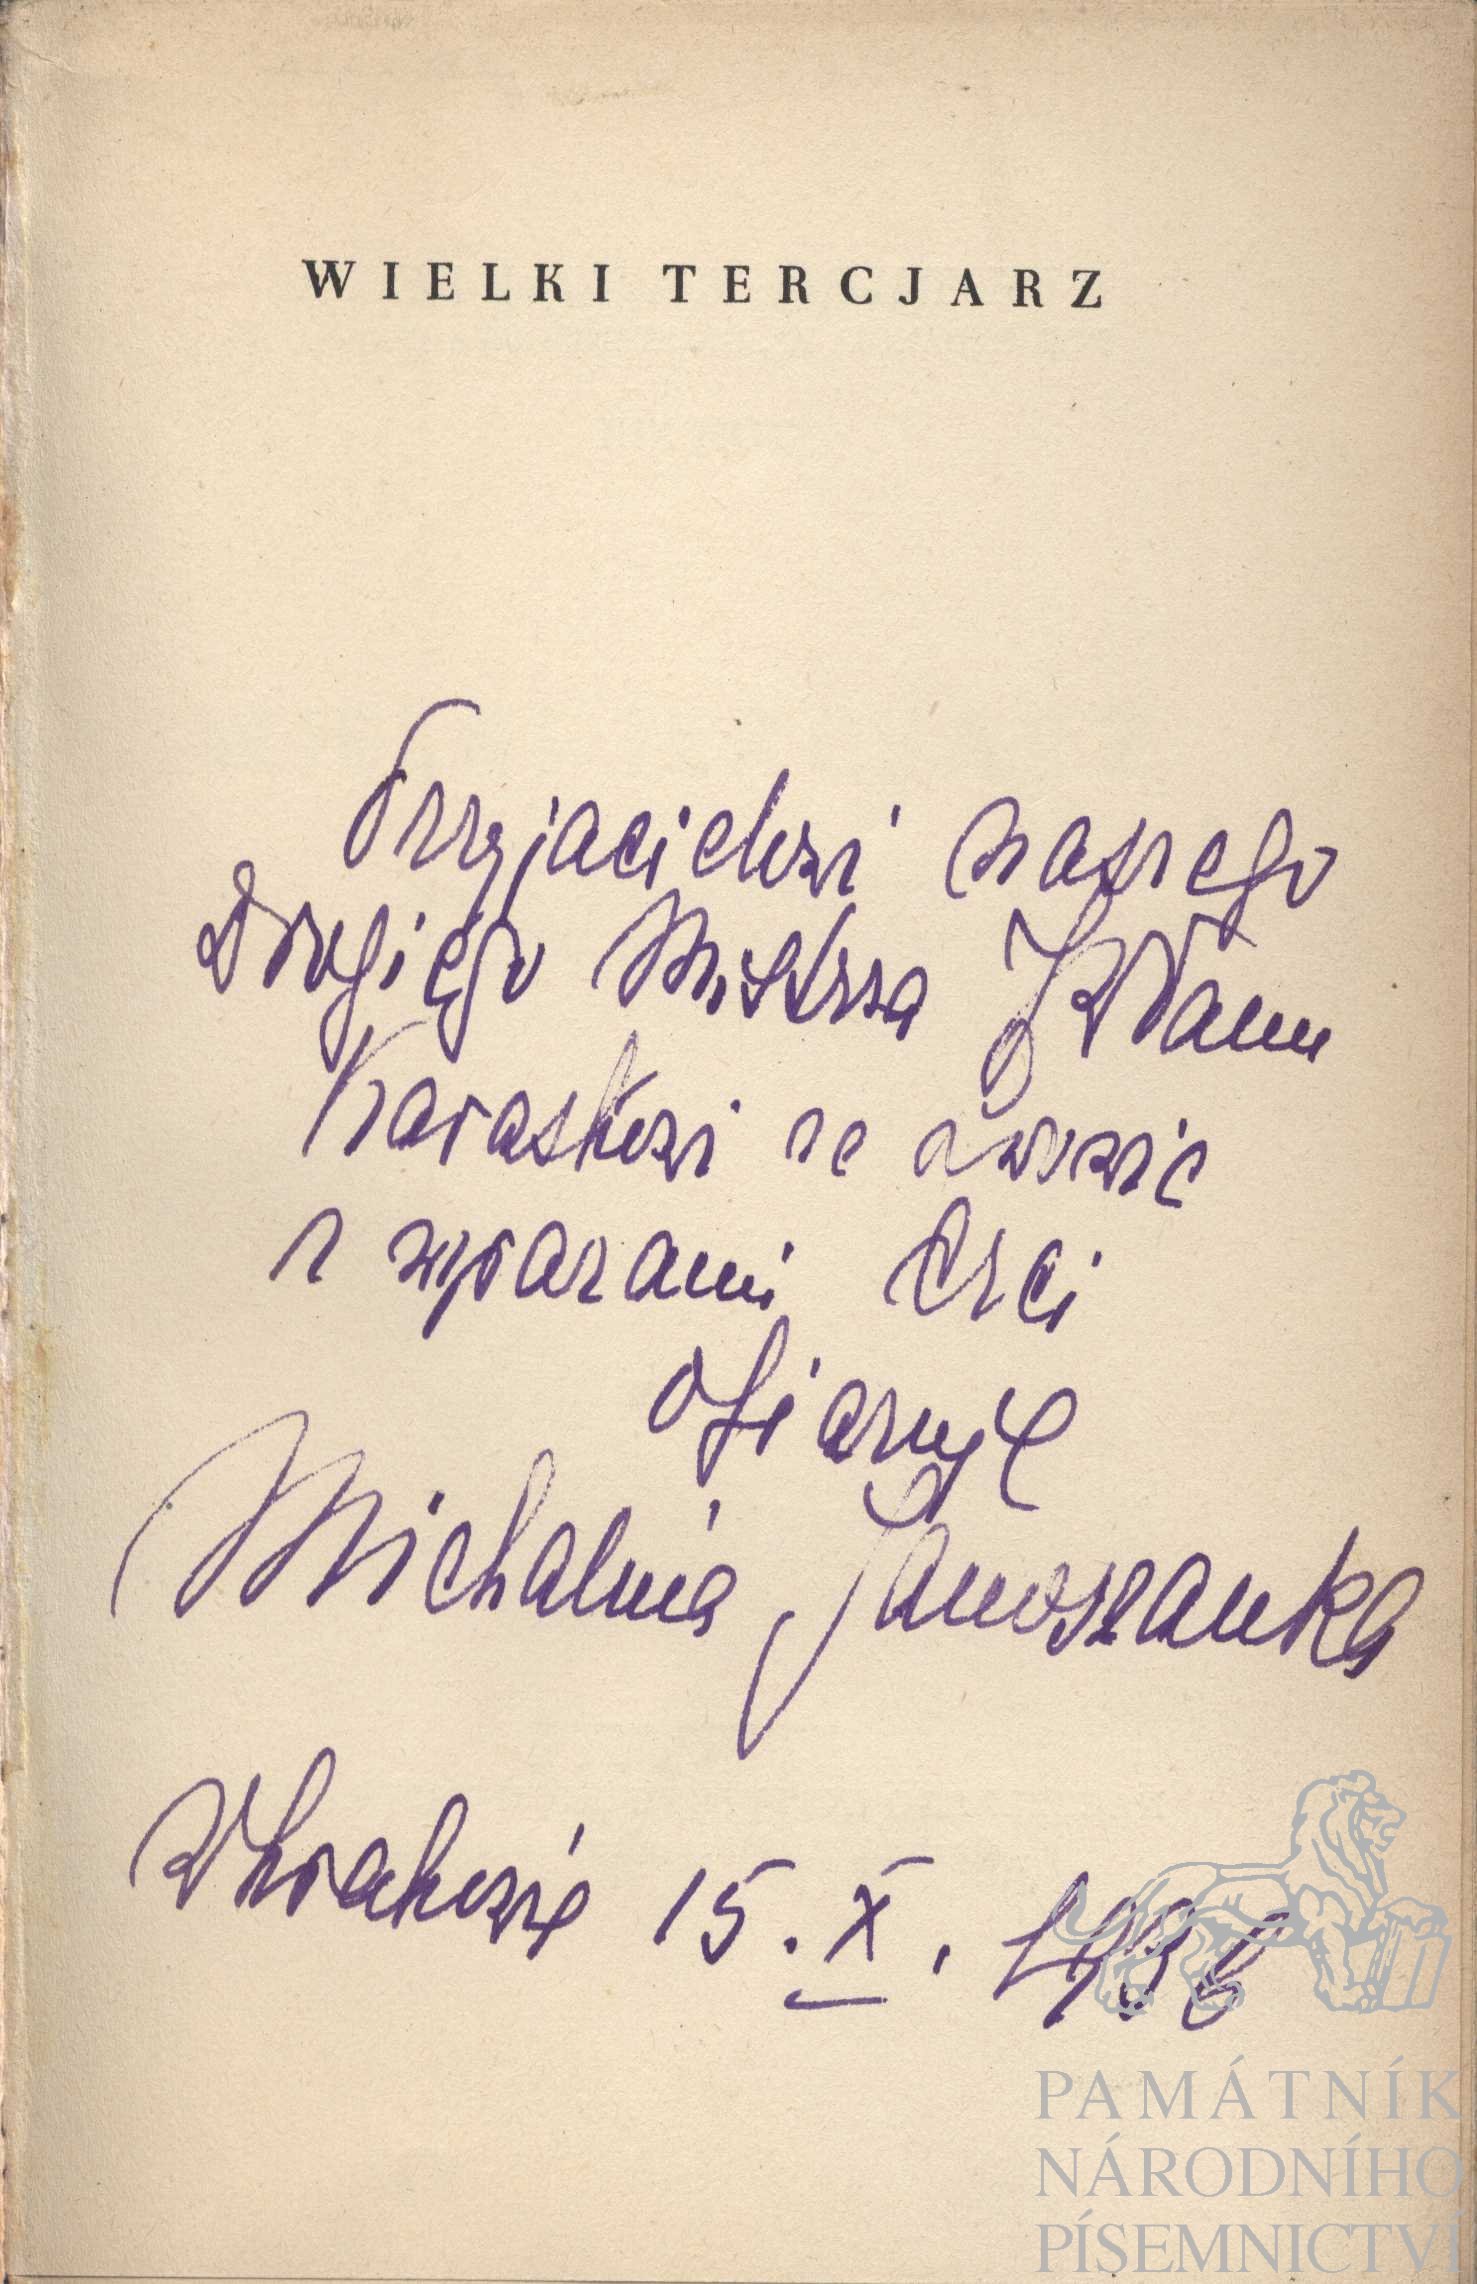 WIELKI TERCJARZ
Przyjacielowi naszego
Drogiego Mistrza JWPanu
Karaskowi ze Lwowic
z wyrazami Czci
ofiaruję
Michalina Janoszanka
W Krakowie 15. X. 1938
PAMÁTNÍK
NÁRODNÍHO
PÍSEMNICTVÍ